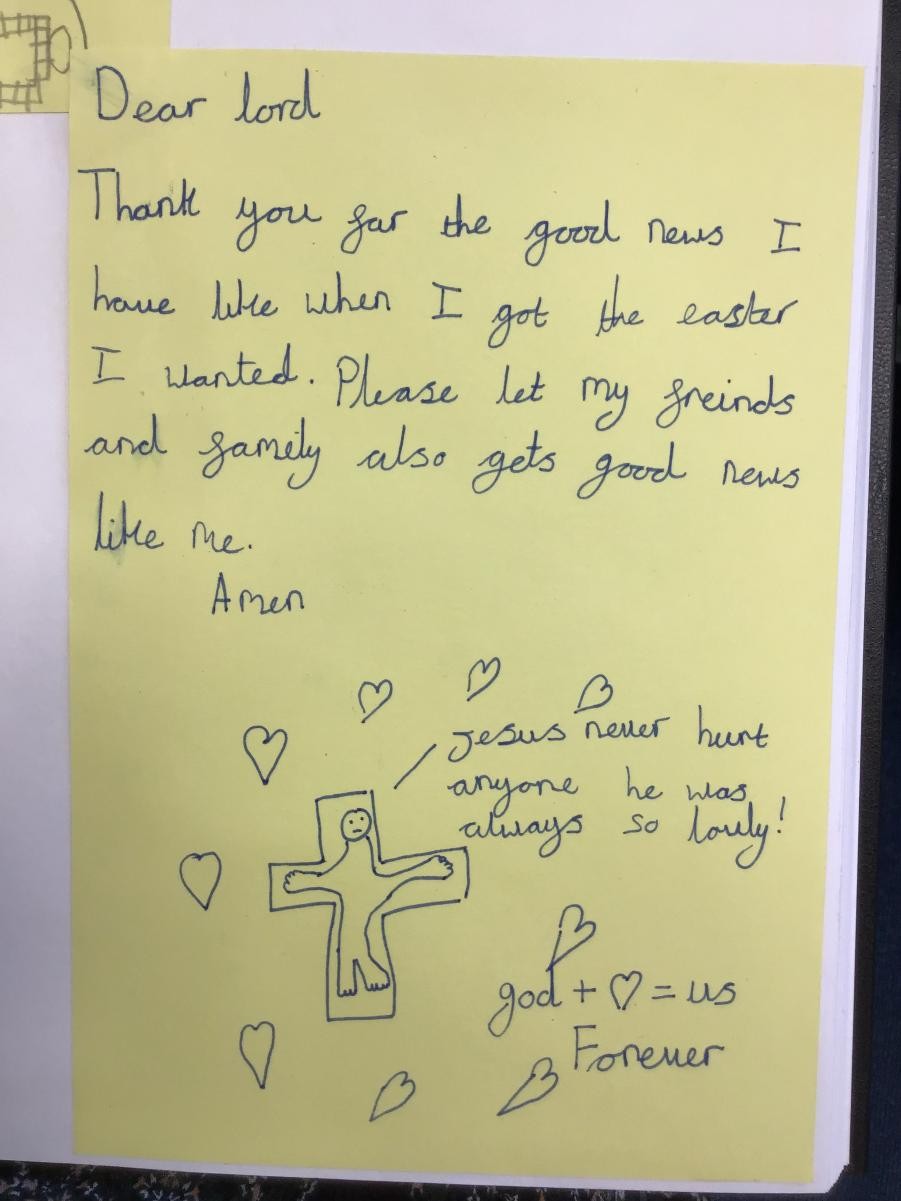 Dear lord
Thank you for the good news I
have like when I got the easter
I wanted. Please let my freinds
and famely also gets good news
like me.
Amen
Jesus never hurt
anyone he was
always so lovly!
god + ♡ = us
Forever